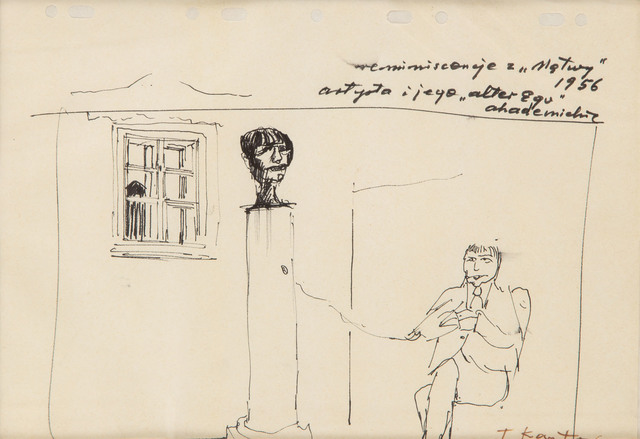 reminiscencje z „Mątwy”
1956
artysta i jego „alter Ego”
akademickie
T. Kantor